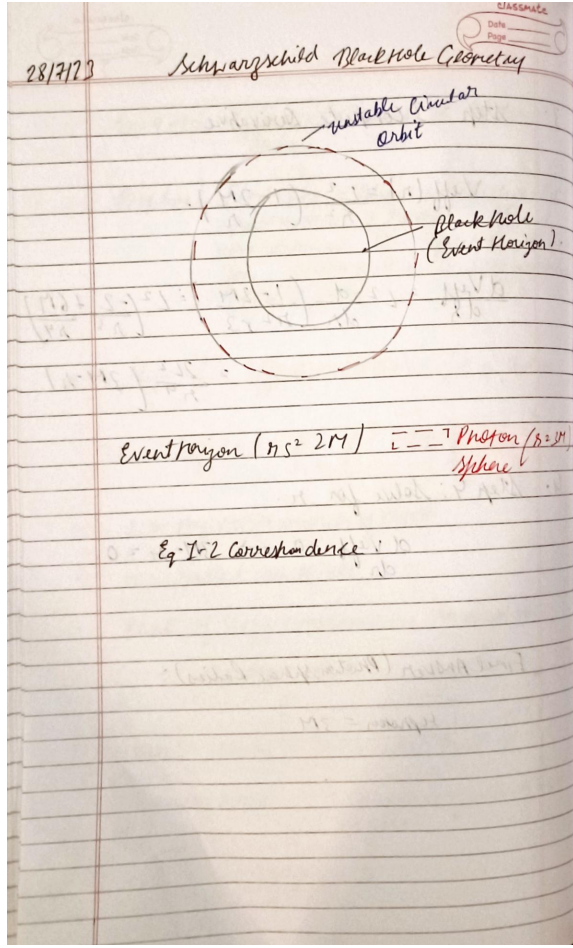 CLASSMATE
Date
Page
28/7/23 Schwarzschild Black Hole Geometry
unstable Circular
Orbit
Black hole
(Event Horizon).
Event Horizon (rs = 2M) Photon (r = 3M
Sphere
Eq. 1-2 Correspondence :